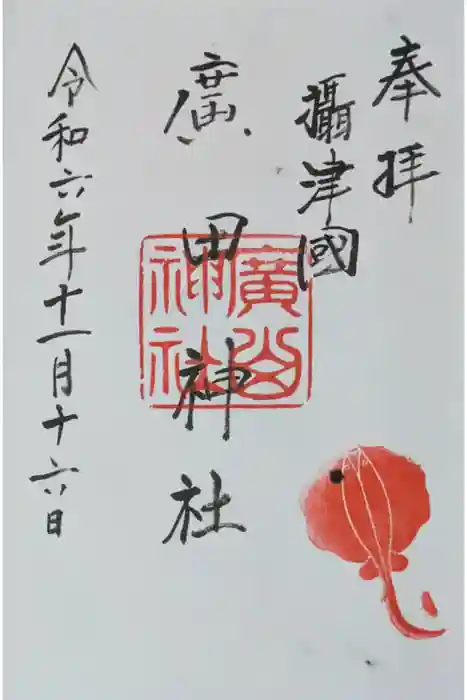 奉拝
攝津國
廣田神社
廣田神社
令和六年十一月十六日